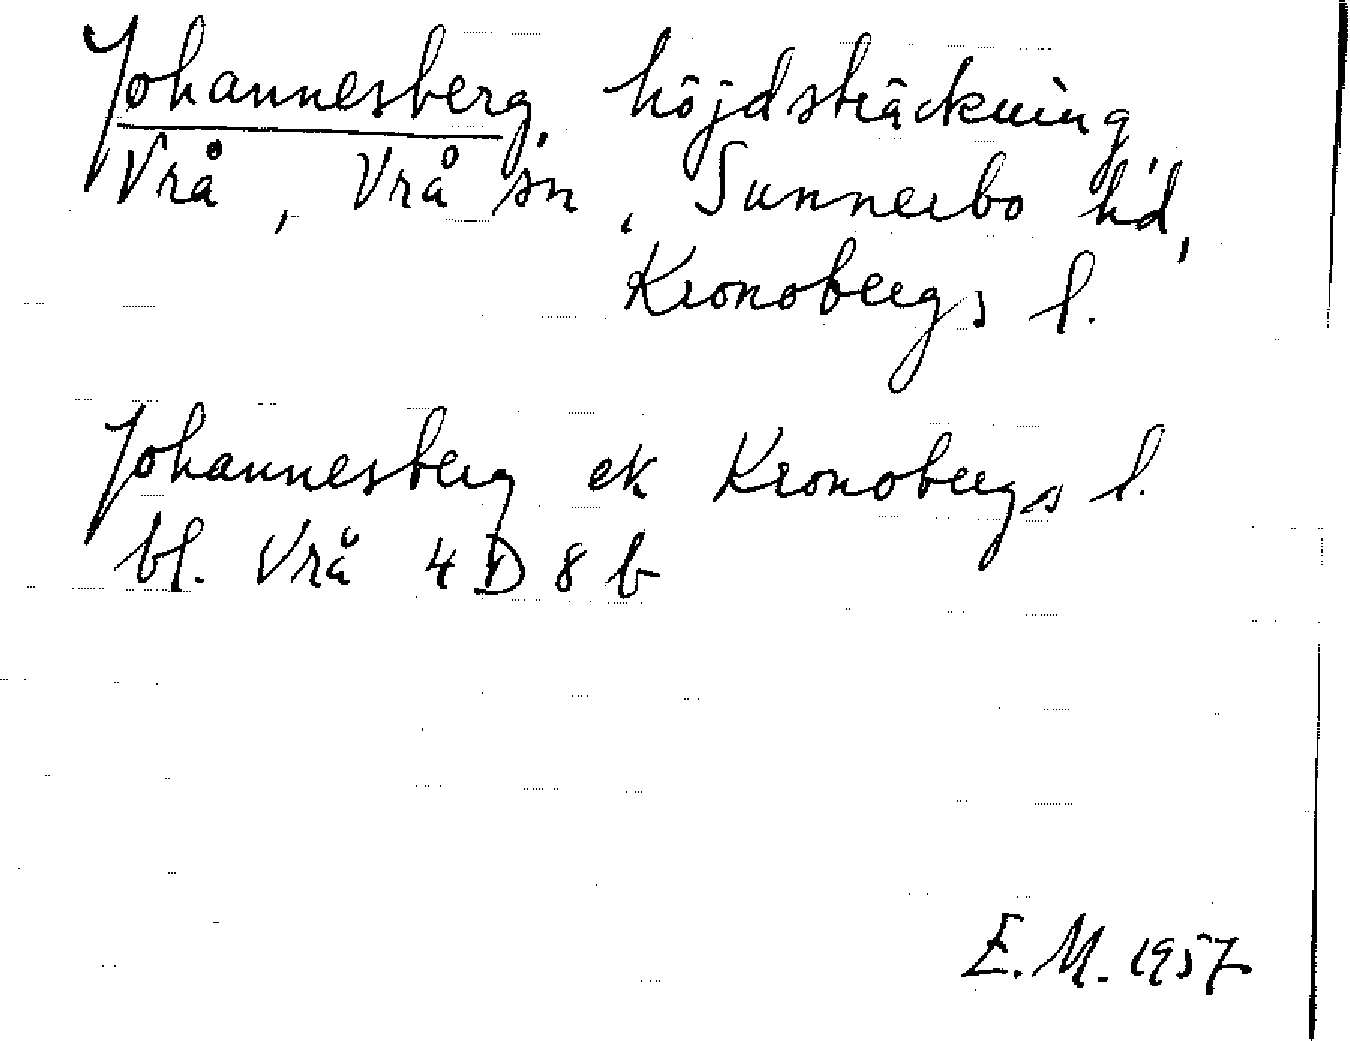 Johannesberg, höjdsträckning,
Vrå, Vrå sn, Sunnerbo hd,
Kronobergs l.
Johannesberg ek Kronobergs l.
bl. Vrå 4 D 8 b
E. M. 1957